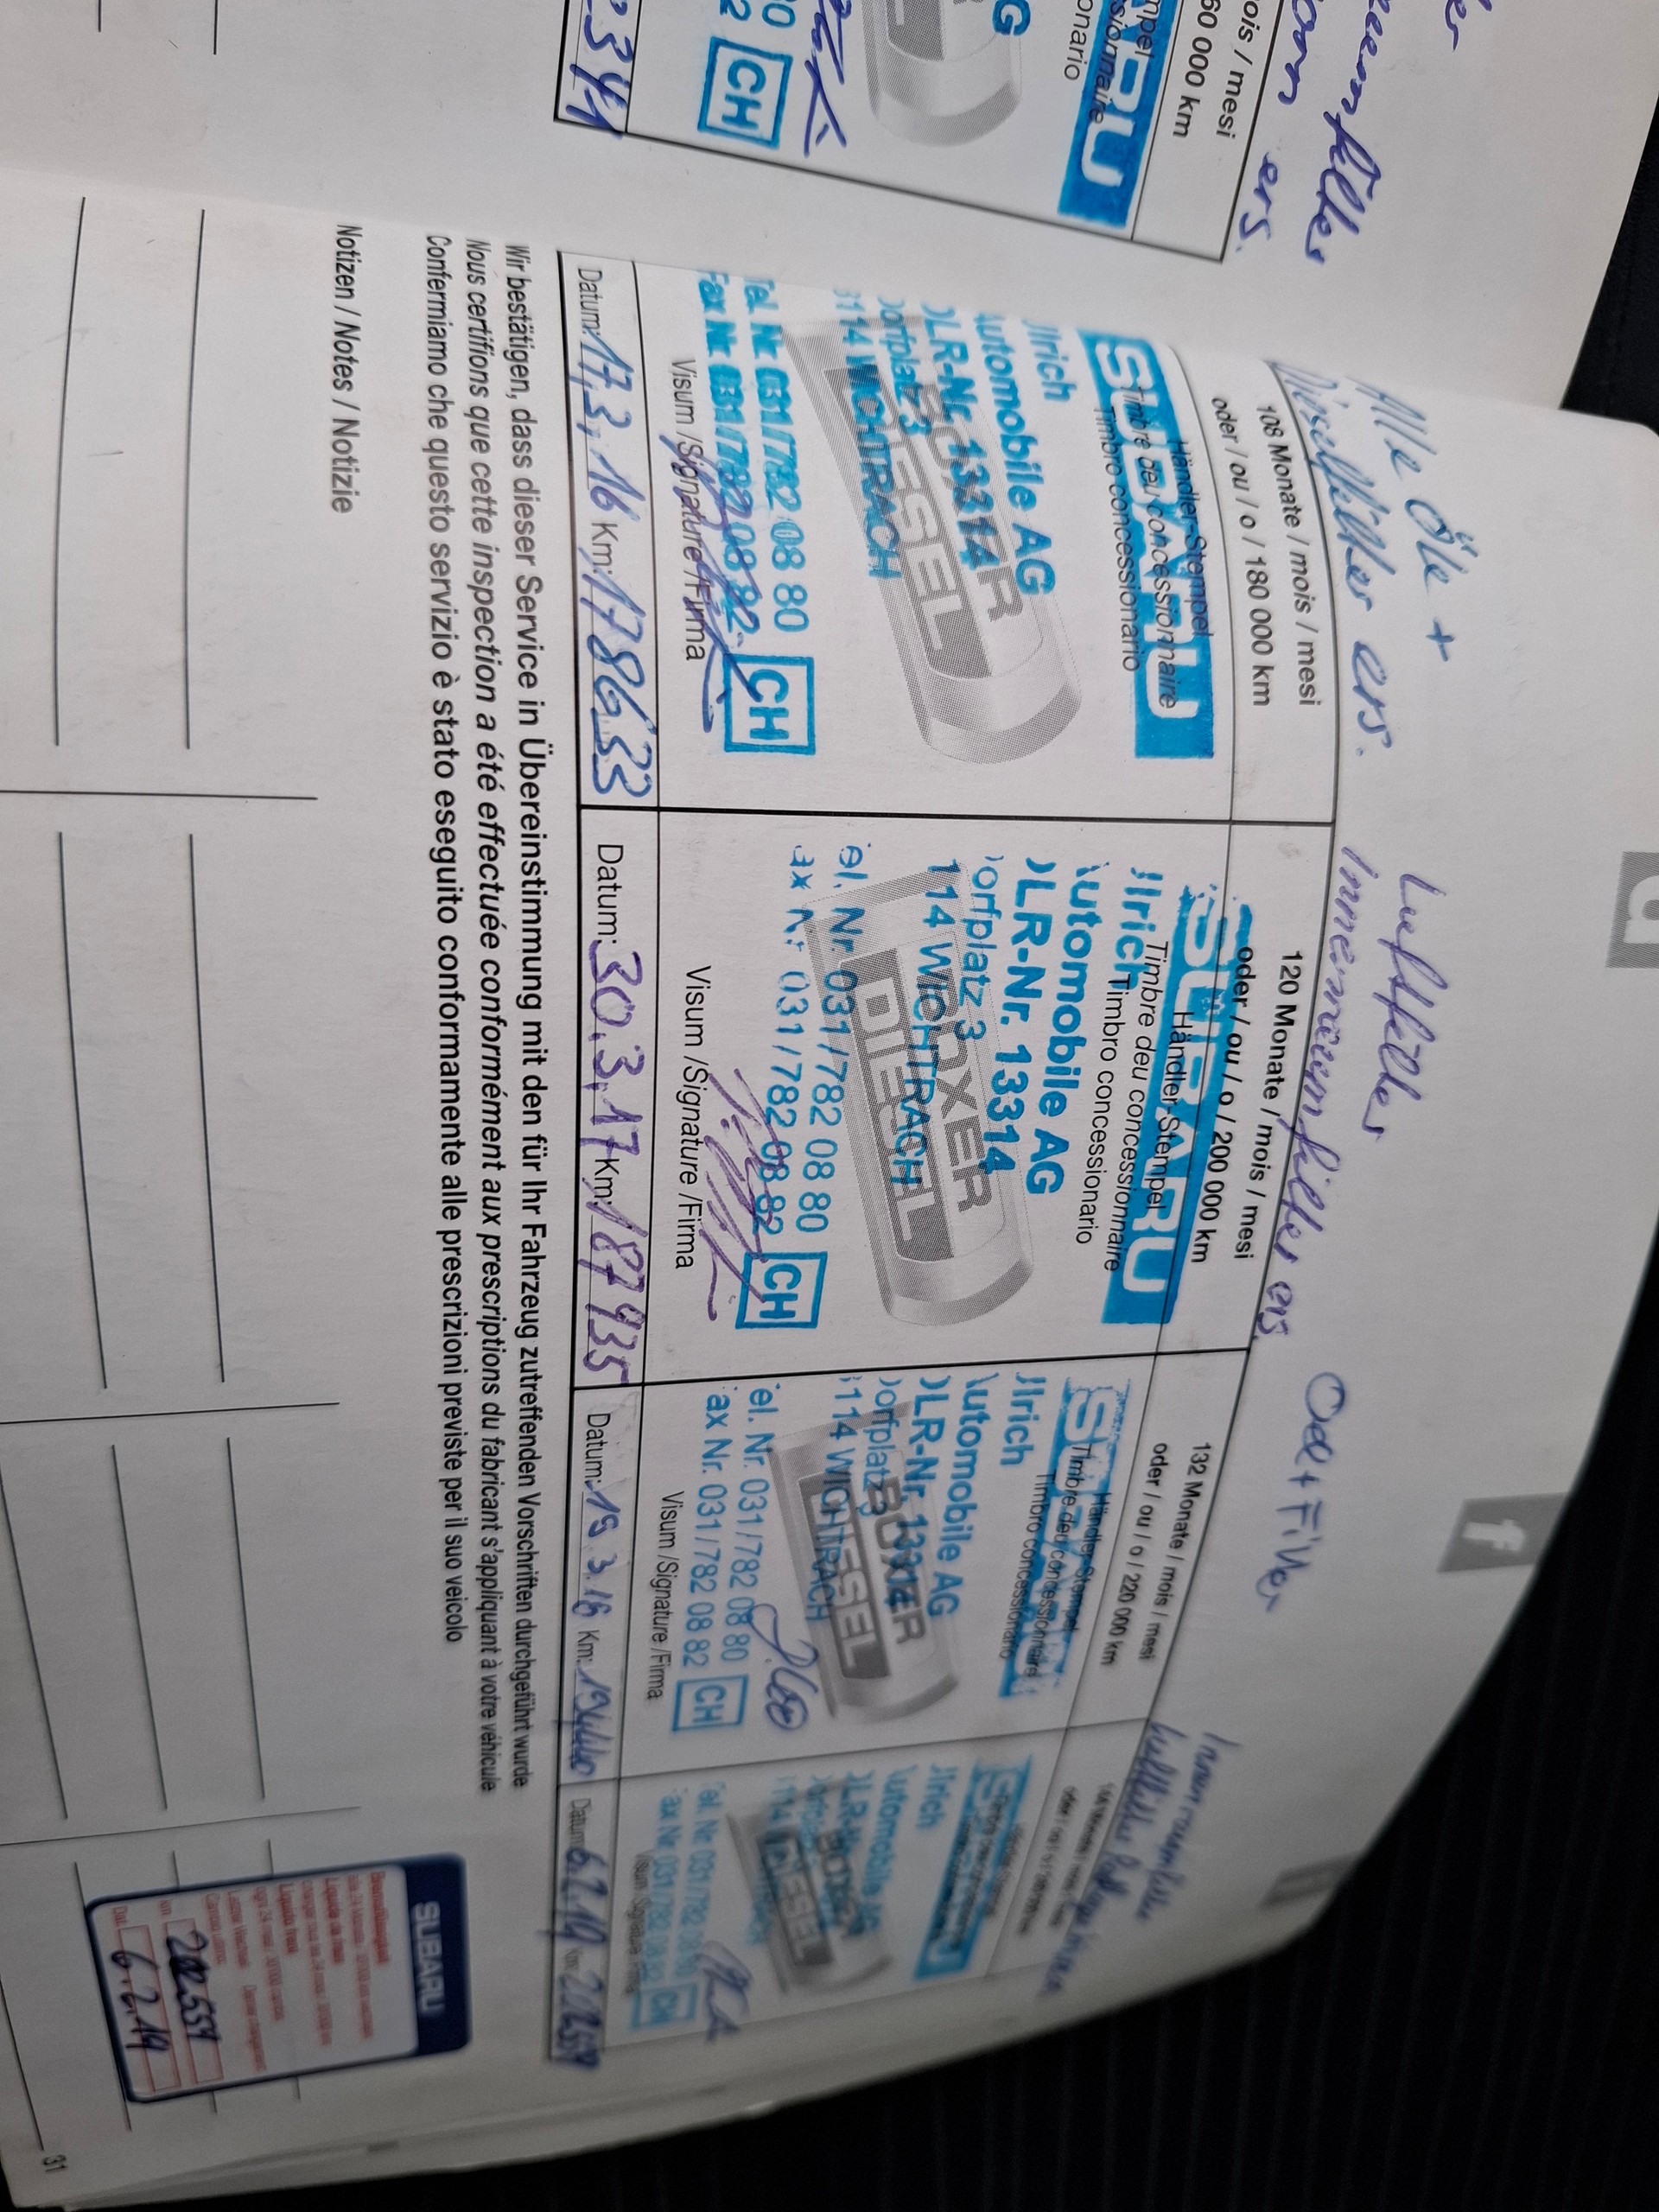 aumfilter
ers.
ois / mesi
60 000 km
mpel
sionnaire
onario
CH
344
Alle Öle +
Dieselfilter ers.
108 Monate / mois / mesi
oder / ou / o / 180 000 km
SUBARU
Händler-Stempel
Timbre deu concessionnaire
Timbro concessionario
lrich
utomobile AG
LR-Nr. 13314
orfplatz 3
114 WICHTRACH
BOXER
DIESEL
Tel. Nr. 031/782 08 80
Fax Nr. 031/782 08 82
CH
Visum /Signature /Firma
Datum: 17.3.16 Km: 178633
Luftfilter
Innenraumfilter ers.
120 Monate / mois / mesi
oder / ou / o / 200 000 km
SUBARU
Händler-Stempel
Timbre deu concessionnaire
Timbro concessionario
lrich
utomobile AG
LR-Nr. 13314
orfplatz 3
114 WICHTRACH
BOXER
DIESEL
el. Nr. 031/782 08 80
ax Nr. 031/782 08 82
CH
Visum /Signature /Firma
Datum: 30.3.17 Km: 187935
Oel + Filter
132 Monate / mois / mesi
oder / ou / o / 220 000 km
SUBARU
Händler-Stempel
Timbre deu concessionnaire
Timbro concessionario
lrich
utomobile AG
LR-Nr. 13314
orfplatz 3
114 WICHTRACH
BOXER
DIESEL
el. Nr. 031/782 08 80
ax Nr. 031/782 08 82
CH
Visum /Signature /Firma
Datum: 19.3.18 Km:
Innenraumfilter
Luftfilter
lrich
utomobile AG
BOXER
DIESEL
el. Nr. 031/782 08 80
ax Nr. 031/782 08 82
CH
Datum: 6.2.19 Km: 202559
Wir bestätigen, dass dieser Service in Übereinstimmung mit den für Ihr Fahrzeug zutreffenden Vorschriften durchgeführt wurde
Nous certifions que cette inspection a été effectuée conformément aux prescriptions du fabricant s'appliquant à votre véhicule
Confermiamo che questo servizio è stato eseguito conformamente alle prescrizioni previste per il suo veicolo
Notizen / Notes / Notizie
SUBARU
Bremsflüssigkeit
km 202559
Dat. 6.2.19
31
d
f